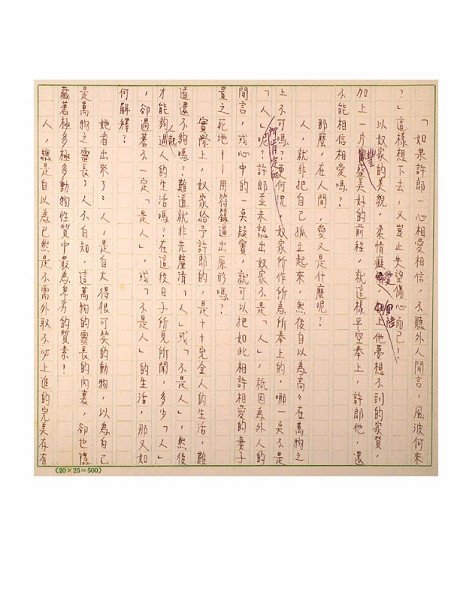 「如果許郎一心相愛相信,不聽外人閒言,風波何來
?」這樣想下去,又豈止失望傷心而已!
以奴家的美貌,柔情癡愛,上他夢想不到的家貲,
加上一片豐美好的前程,就這樣平空奉上,許郎他,還
不能相信相愛嗎?
那麼,在人間,愛又是什麼呢?
人,就非把自己孤立起來,然後自以為高高在萬物之
上不可嗎?更何況,奴家所作所為所奉上的,哪一是不是
「人」呢?許郎並未認出奴家不是「人」,祇因為外人的
閒言,或心中的一點疑竇,就可以把如此相許相愛的妻子
置之死地——用符籙逼出原形嗎?
實際上,奴家給予許郎的,是十十足全人的生活,難
道還不夠嗎?難道就非先釐清「人」或「不是人」,然後
才能夠過人的生活嗎?在這後日子所見所聞,多少「人」
,卻過著不一定「是人」,或「不是人」的生活,那又如
何解釋?
她看出來了?人,是自大得很可笑的動物,以為自己
是萬物之靈長?人不自知,這萬物的靈長的內裏,卻也隱
藏著極多極多動物性質中最為卑劣的質素!
人,總是自以為已然是不需外取不必上進的完美存有
(20×25=500)